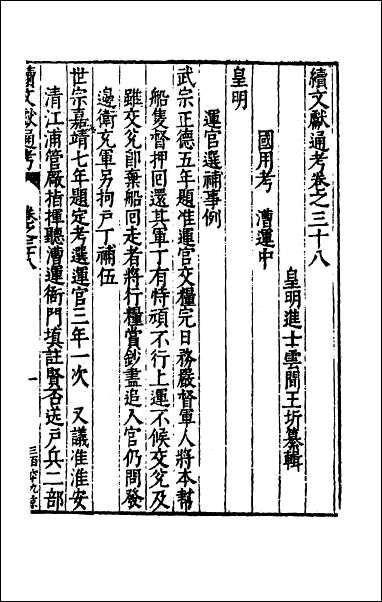 續文獻通考卷之三十八
皇明進士雲間王圻纂輯
國用考 漕運中
皇明
運官選補事例
武宗正德五年題准運官交糧完日務嚴督軍人將本幫
船隻督押回還其軍丁有恃頑不行上運不候交兌及
雖交兌卽棄船回走者將行糧賞鈔盡追入官仍問發
邊衛充軍另拘戶丁補伍
世宗嘉靖七年題定考選運官三年一次 又議准淮安
清江浦管厰指揮聽漕運衙門填註賢否送戶兵二部
續文獻通考 卷之三十八 一